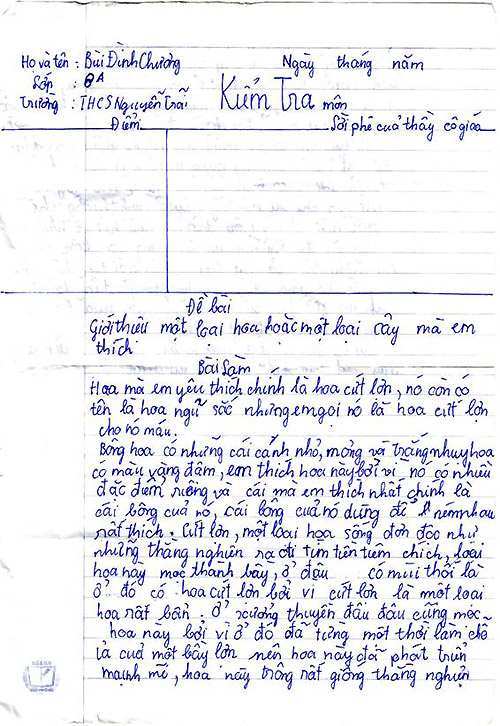 Họ và tên : Bùi Đình Chương Ngày tháng năm
Lớp : 8A
Trường : THCS Nguyễn Trãi Kiểm Tra môn
Điểm Lời phê của thầy cô giáo
Đề bài
Giới thiệu một loại hoa hoặc một loại cây mà em
thích
Bài Làm
Hoa mà em yêu thích chính là hoa cứt lợn, nó còn có
tên là hoa ngũ sắc nhưng em gọi nó là hoa cứt lợn
cho nó máu.
Bông hoa có những cái cánh nhỏ, mỏng và trắng nhuỵ hoa
có màu vàng đậm, em thích hoa này bởi vì nó có nhiều
đặc điểm riêng và cái mà em thích nhất chính là
cái bông của nó, cái bông của nó dùng để ném nhau
rất thích. Cứt lợn, một loại hoa sống đơn độc như
những thằng nghiện ra đi tìm tiên tiêm chích, loại
hoa này mọc thành bầy, ở đâu có mùi thối là
ở đó có hoa cứt lợn bởi vì cứt lợn là một loại
hoa rất bẩn. ở xưởng thuyền đâu đâu cũng mọc
hoa này bởi vì ở đó đã từng một thời làm chỗ
ỉa của một bầy lợn nên hoa này đã phát triển
mạnh mẽ, hoa này trông rất giống thằng nghiện